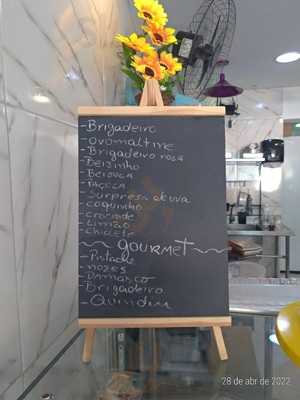 - Brigadeiro
- ovomaltine
- Brigadeiro rosa
- Beijinho
- Beiouca
- Paçoca
- Surpresa de uva
- coquinho
- crocante
- Limão
- chiclete
gourmet
- Pistache
- nozes
- Damasco
- Brigadeiro
- Quindim
28 de abr de 2022